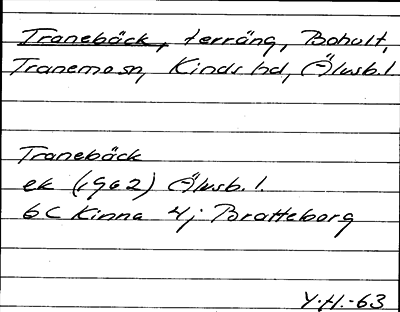 Tranebäck, terräng, Bohult,
Tranemo sn, Kinds hd, Älvsb. l
Tranebäck
ek (1962) Älvsb. l.
6C Kinna 4j Bratteborg
Y.H.-63